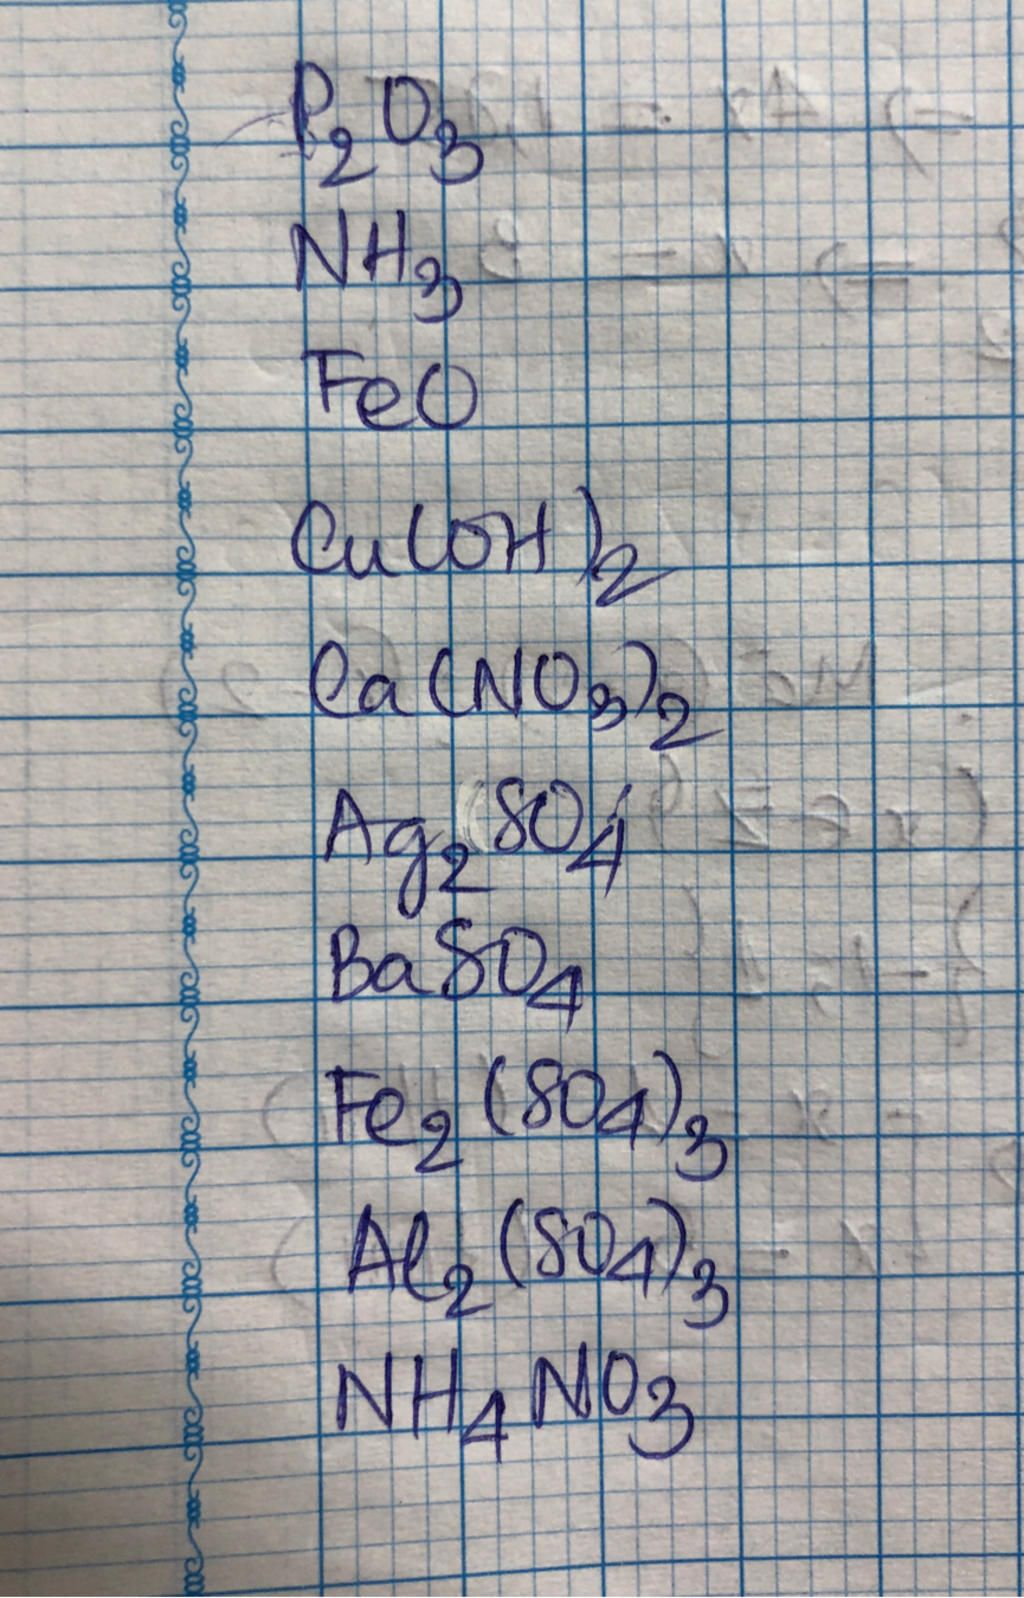 P₂O₃
NH₃
FeO
Cu(OH)₂
Ca(NO₃)₂
Ag₂SO₄
BaSO₄
Fe₂(SO₄)₃
Al₂(SO₄)₃
NH₄NO₃